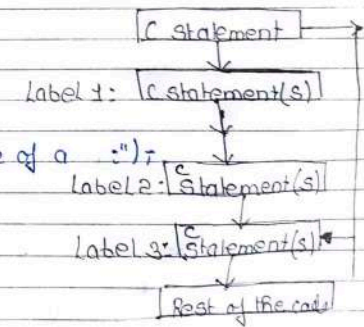 C statement
Label 1: C statement(s)
e of a :");
Label 2: C Statement(s)
Label 3: C Statement(s)
Rest of the code